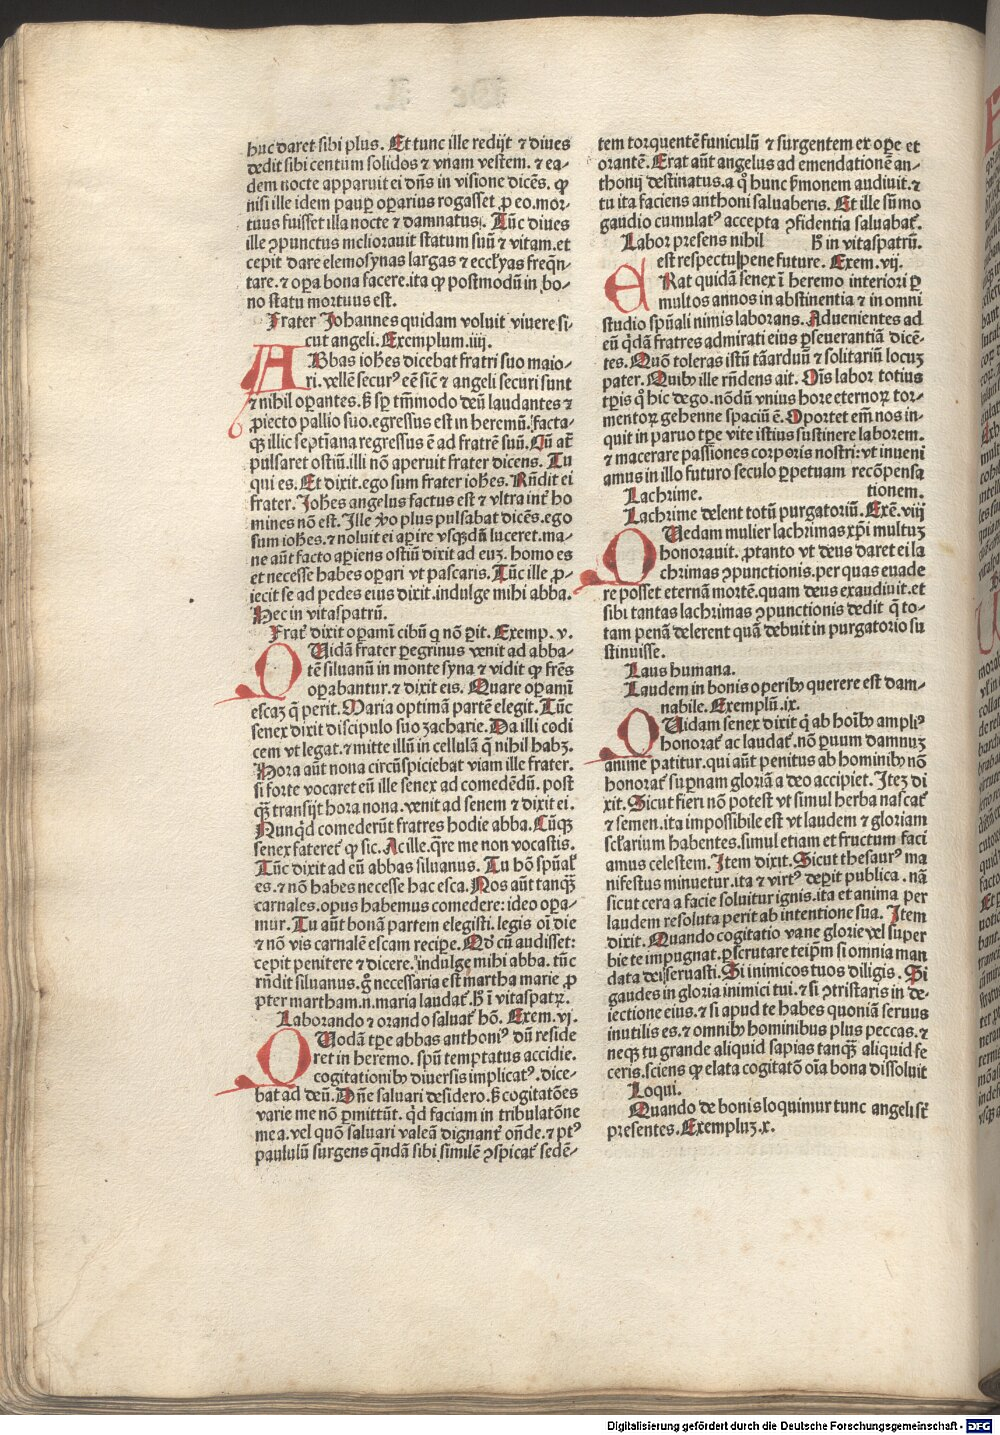 huc daret sibi plus. Et tunc ille redijt ⁊ diues
dedit sibi centum solidos ⁊ vnam vestem. ⁊ ea⸗
dem nocte apparuit ei dñs in visione dicẽs. ꝙ
nisi ille idem pauꝑ oꝑarius rogasset ꝓ eo. mor⸗
tuus fuisset illa nocte ⁊ damnatus. Tũc diues
ille ꝯpunctus meliorauit statum suũ ⁊ vitam. et
cepit dare elemosynas largas ⁊ eccl'yas freq̃n⸗
tare. ⁊ oꝑa bona facere. ita ꝙ postmodũ in bo⸗
no statu mortuus est.
Frater Johannes quidam voluit viuere si⸗
cut angeli. Exemplum. iiij.
ABbas ioh̃es dicebat fratri suo maio⸗
ri. vellẽ securꝰ eẽ sic̃ ⁊ angeli securi sunt
⁊ nihil oꝑantes. ß sꝑ tm̃modo deũ laudantes ⁊
ꝓiecto pallio suo. egressus est in heremũ. facta⸗
qꝫ illic septĩana regressus ẽ ad fratrẽ suũ. Cũ at̃
pulsaret ostiũ. illi nõ aperuit frater dicens. Tu
qui es. Et dixit. ego sum frater ioh̃es. Rñdit ei
frater. Joh̃es angelus factus est ⁊ vltra int̃ ho
mines nõ est. Ille ṽo plus pulsabat dicẽs. ego
sum ioh̃es. ⁊ noluit ei aꝑire vsqꝫdũ luceret. ma⸗
ne aũt facto aꝑiens ostiũ dixit ad euꝫ. homo es
et necesse habes oꝑari vt pascaris. Tũc ille ꝓ⸗
iecit se ad pedes eius dixit. indulge mihi abba.
Hec in vitaspatrũ.
Frat̃ dixit oꝑam̃ cibũ q̃ nõ ꝑit. Exemp. v.
QUidã frater ꝑegrinus venit ad abba⸗
tẽ siluanũ in monte syna ⁊ vidit ꝙ fr̃es
oꝑabantur. ⁊ dixit eis. Quare oꝑam̃
escaꝫ q̃ perit. Maria optimã partẽ elegit. Tũc
senex dixit discipulo suo zacharie. Da illi codi
cem vt legat. ⁊ mitte illũ in cellulã q̃ nihil habꝫ.
Hora aũt nona circũspiciebat viam ille frater.
si forte vocaret eũ ille senex ad comedẽdũ. post
qꝫ̃ transijt hora nona. venit ad senem ⁊ dixit ei.
Nunqͥd comederũt fratres hodie abba. Cũqꝫ
senex fateret̃ ꝙ sic. Ac ille. qͣre me non vocastis.
Tũc dixit ad eũ abbas siluanus. Tu hõ spũal'
es. ⁊ nõ habes necesse hac esca. Nos aũt tanqꝫ̃
carnales. opus habemus comedere: ideo oꝑa⸗
mur. Tu aũt bonã partem elegisti. legis oĩ die
⁊ nõ vis carnalẽ escam recipe. Qd̓ cũ audisset:
cepit penitere ⁊ dicere. indulge mihi abba. tũc
rñdit siluanus. g̃ necessaria est martha marie ꝓ
pter martham. n. maria laudat̃. H̃ ĩ vitaspatꝝ.
Laborando ⁊ orando saluat̃ hõ. Exem. vj.
QUodã tꝑe abbas anthoniꝰ dũ reside
ret in heremo. spũ temptatus accidie.
cogitationibꝰ diuersis implicatꝰ. dice⸗
bat ad deũ. Dñe saluari desidero. ß cogitatões
varie me nõ ꝑmittũt. qͥd faciam in tribulatõne
mea. vel quõ saluari valeã dignant̃ oñde. ⁊ ptꝰ
paululũ surgens q̃ndã sibi similẽ ꝯspicat̃ sedẽ⸗
tem torquentẽ funiculũ ⁊ surgentem ex oꝑe et
orantẽ. Erat aũt angelus ad emendationẽ an⸗
thonij destinatus. a qͦ hunc ß̃monem audiuit. ⁊
tu ita faciens anthoni saluaberis. Et ille sũmo
gaudio cumulatꝰ accepta ꝯfidentia saluabat̃.
Labor presens nihil    H̃ in vitaspatrũ.
est respectu pene future. Exem. vij.
ERat quidã senex ĩ heremo interiori ꝑ
multos annos in abstinentia ⁊ in omni
studio spũali nimis laborans. Aduenientes ad
eũ qͥdã fratres admirati eius ꝑseuerantiã dicẽ⸗
tes. Quõ toleras istũ tã arduũ ⁊ solitariũ locuꝫ
pater. Quibꝰ ille rñdens ait. Oĩs labor totius
tꝑis qͦ hic dego. nõdũ vnius hore eternoꝝ tor⸗
mentoꝝ gehenne spaciũ ẽ. Oportet em̃ nos in⸗
quit in paruo tꝑe vite istius sustinere laborem.
⁊ macerare passiones corporis nostri: vt inueni
amus in illo futuro seculo ꝑpetuam recõpensa
Lachrime.    tionem.
Lachrime delent totũ purgatoriũ. Exẽ. viij
QUedam mulier lachrimas xp̃i multuꝫ
honorauit. ꝓtanto vt deus daret ei la
chrimas ꝯpunctionis. per quas euade
re posset eternã mortẽ. quam deus exaudiuit. et
sibi tantas lachrimas ꝯpunctionis dedit q̃ to⸗
tam penã delerent quã debuit in purgatorio su
stinuisse.
Laus humana.
Laudem in bonis operibꝰ querere est dam⸗
nabile. Exemplũ. ix.
QUidam senex dixit q̃ ab hoĩbꝰ ampliꝰ
honorat̃ ac laudat̃. nõ ꝑuum damnuꝫ
anime patitur. qui aũt penitus ab hominibꝰ nõ
honorat̃ suꝑnam gloriã a deo accipiet. Iteꝫ di
xit. Sicut fieri nõ potest vt simul herba nascat̃
⁊ semen. ita impossibile est vt laudem ⁊ gloriam
scl'arium habentes. simul etiam et fructum faci
amus celestem. Item dixit. Sicut thesaurꝰ ma
nifestus minuetur. ita ⁊ virtꝰ deꝑit publica. nã
sicut cera a facie soluitur ignis. ita et anima per
laudem resoluta perit ab intentione sua. Item
dixit. Quando cogitatio vane glorie vel super
bie te impugnat. ꝑscrutare teip̃m si omnia man
data dei seruasti. Si inimicos tuos diligis. Si
gaudes in gloria inimici tui. ⁊ si ꝯtristaris in de⸗
iectione eius. ⁊ si apud te habes quoniã seruus
inutilis es. ⁊ omnibꝰ hominibus plus peccas. ⁊
neqꝫ tu grande aliquid sapias tanqꝫ̃ aliquid fe
ceris. sciens ꝙ elata cogitatõ oĩa bona dissoluit
Loqui.
Quando de bonis loquimur tunc angeli st̃
presentes. Exempluꝫ. x.
Digitalisierung gefördert durch die Deutsche Forschungsgemeinschaft - DFG